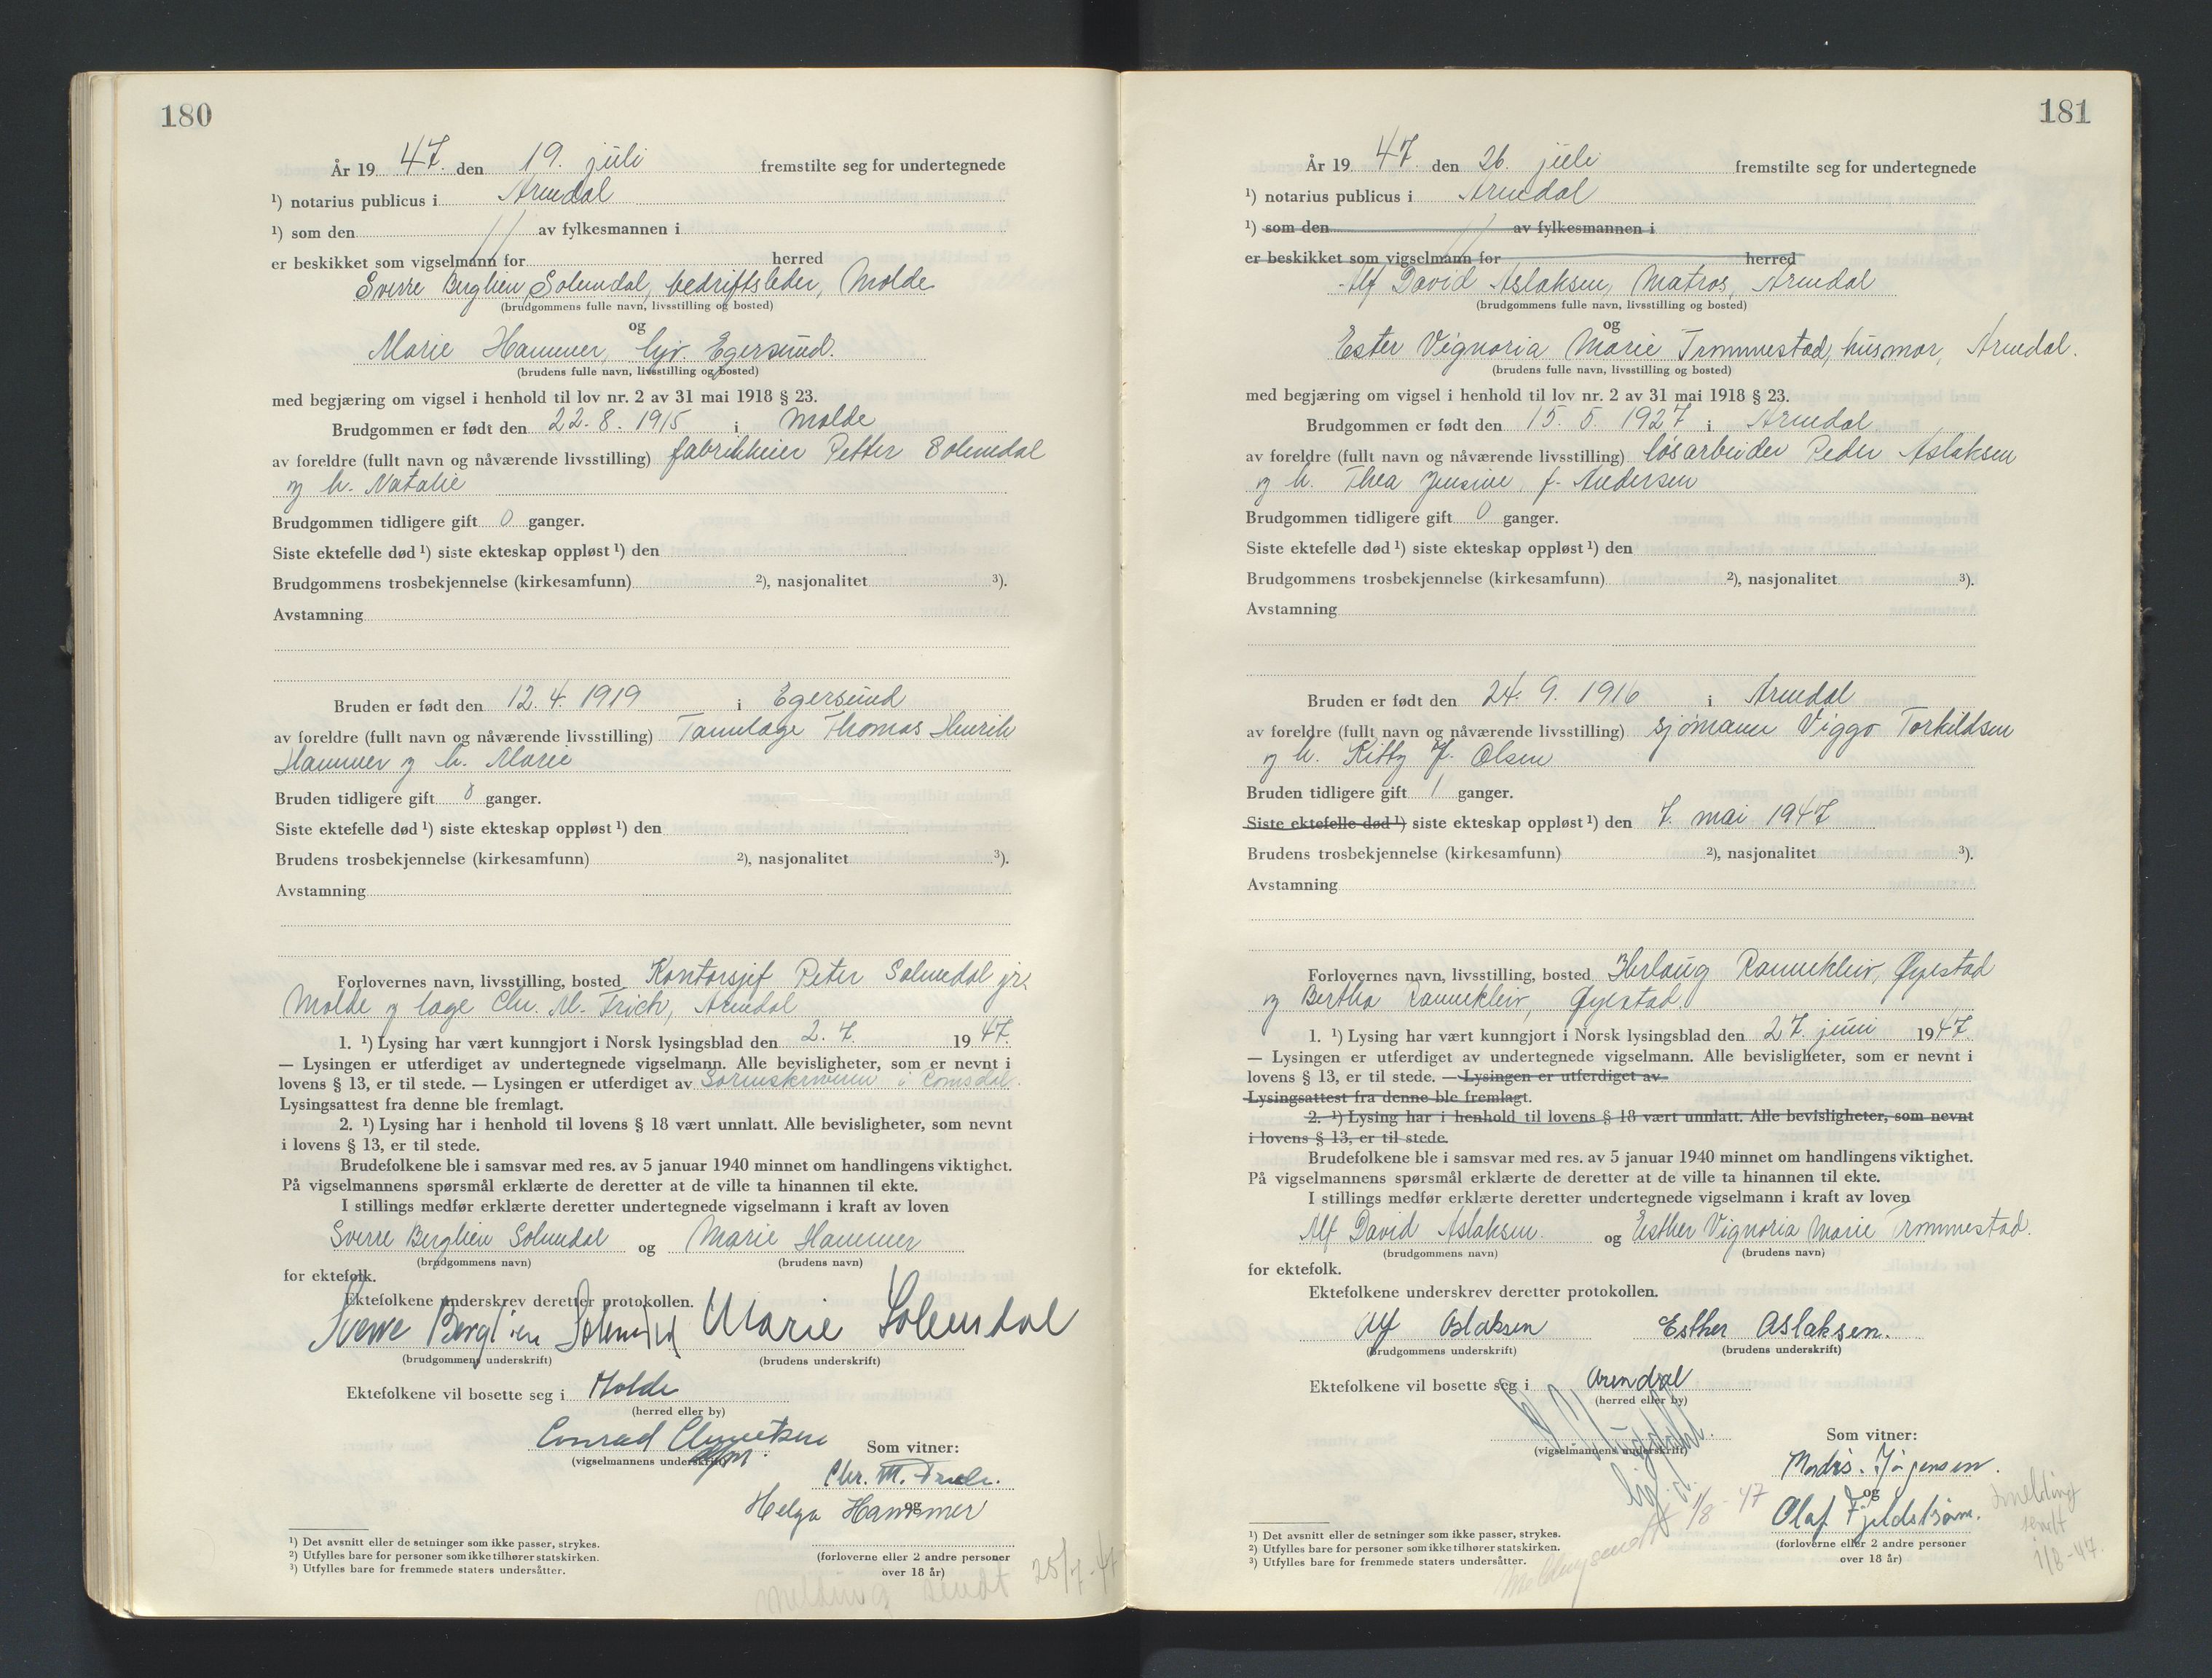 180
År 19 47. den 19. juli fremstilte seg for undertegnede
¹) notarius publicus i Arendal
¹) som den av fylkesmannen i
er beskikket som vigselmann for herred
Sverre Berglien Solemdal, bedriftsleder, Molde
(brudgommens fulle navn, livsstilling og bosted)
og
Marie Hammer, hjv. Egersund.
(brudens fulle navn, livsstilling og bosted)
med begjæring om vigsel i henhold til lov nr. 2 av 31 mai 1918 § 23.
Brudgommen er født den 22. 8. 1915 i Molde
av foreldre (fullt navn og nåværende livsstilling) fabrikkeier Petter Solemdal
og h. Natalie
Brudgommen tidligere gift 0 ganger.
Siste ektefelle død ¹) siste ekteskap oppløst ¹) den
Brudgommens trosbekjennelse (kirkesamfunn) ²), nasjonalitet ³).
Avstamning
Bruden er født den 12. 4. 1919 i Egersund
av foreldre (fullt navn og nåværende livsstilling) Tannlæge Thomas Henrik
Hammer og h. Marie
Bruden tidligere gift 0 ganger.
Siste ektefelle død ¹) siste ekteskap oppløst ¹) den
Brudens trosbekjennelse (kirkesamfunn) ²), nasjonalitet ³).
Avstamning
Forlovernes navn, livsstilling, bosted Kontorsjef Peter Solemdal jr.
Molde og læge Chr. M. Frich, Arendal
1. ¹) Lysing har vært kunngjort i Norsk lysingsblad den 2. 7. 19 47.
— Lysingen er utferdiget av undertegnede vigselmann. Alle bevisligheter, som er nevnt i
lovens § 13, er til stede. — Lysingen er utferdiget av Sorenskriveren i Romsdal.
Lysingsattest fra denne ble fremlagt.
2. ¹) Lysing har i henhold til lovens § 18 vært unnlatt. Alle bevisligheter, som nevnt
i lovens § 13, er til stede.
Brudefolkene ble i samsvar med res. av 5 januar 1940 minnet om handlingens viktighet.
På vigselmannens spørsmål erklærte de deretter at de ville ta hinannen til ekte.
I stillings medfør erklærte deretter undertegnede vigselmann i kraft av loven
Sverre Berglien Solemdal og Marie Hammer
(brudgommens navn) (brudens navn)
for ektefolk.
Ektefolkene underskrev deretter protokollen.
Sverre Berglien Solemdal Marie Solemdal
(brudgommens underskrift) (brudens underskrift)
Ektefolkene vil bosette seg i Molde
(herred eller by)
Conrad
(vigselmannens underskrift)
Som vitner:
Chr. M. Frich.
og
Helga Hammer
(forloverne eller 2 andre personer
over 18 år)
¹) Det avsnitt eller de setninger som ikke passer, strykes.
²) Utfylles bare for personer som ikke tilhører statskirken.
³) Utfylles bare for fremmede staters undersåtter.
melding sendt 25/7-47
181
År 19 47. den 26. juli fremstilte seg for undertegnede
¹) notarius publicus i Arendal
¹) som den av fylkesmannen i
er beskikket som vigselmann for herred
Alf David Aslaksen, Matros, Arendal
(brudgommens fulle navn, livsstilling og bosted)
og
Ester Vignoria Marie Trommestad, husmor, Arendal.
(brudens fulle navn, livsstilling og bosted)
med begjæring om vigsel i henhold til lov nr. 2 av 31 mai 1918 § 23.
Brudgommen er født den 15. 5. 1927 i Arendal
av foreldre (fullt navn og nåværende livsstilling) løsarbeider Peder Aslaksen
og h. Thea Jensine f. Andersen
Brudgommen tidligere gift 0 ganger.
Siste ektefelle død ¹) siste ekteskap oppløst ¹) den
Brudgommens trosbekjennelse (kirkesamfunn) ²), nasjonalitet ³).
Avstamning
Bruden er født den 24. 9. 1916 i Arendal
av foreldre (fullt navn og nåværende livsstilling) sjømann Viggo Torkildsen
og h. Kitty J. Olsen
Bruden tidligere gift 1 ganger.
Siste ektefelle død ¹) siste ekteskap oppløst ¹) den 7. mai 1947
Brudens trosbekjennelse (kirkesamfunn) ²), nasjonalitet ³).
Avstamning
Forlovernes navn, livsstilling, bosted Herlaug Rannekleiv, Øyestad
og Bertha Rannekleiv, Øyestad.
1. ¹) Lysing har vært kunngjort i Norsk lysingsblad den 27. juni 1947.
— Lysingen er utferdiget av undertegnede vigselmann. Alle bevisligheter, som er nevnt i
lovens § 13, er til stede. — Lysingen er utferdiget av
Lysingsattest fra denne ble fremlagt.
2. ¹) Lysing har i henhold til lovens § 18 vært unnlatt. Alle bevisligheter, som nevnt
i lovens § 13, er til stede.
Brudefolkene ble i samsvar med res. av 5 januar 1940 minnet om handlingens viktighet.
På vigselmannens spørsmål erklærte de deretter at de ville ta hinannen til ekte.
I stillings medfør erklærte deretter undertegnede vigselmann i kraft av loven
Alf David Aslaksen. og Esther Vignoria Marie Trommestad.
(brudgommens navn) (brudens navn)
for ektefolk.
Ektefolkene underskrev deretter protokollen.
Alf Aslaksen Esther Aslaksen.
(brudgommens underskrift) (brudens underskrift)
Ektefolkene vil bosette seg i Arendal
(herred eller by)
(vigselmannens underskrift)
Som vitner:
Jørgensen.
og
Olaf Fjeldstrøm.
(forloverne eller 2 andre personer
over 18 år)
¹) Det avsnitt eller de setninger som ikke passer, strykes.
²) Utfylles bare for personer som ikke tilhører statskirken.
³) Utfylles bare for fremmede staters undersåtter.
Melding sendt 1/8-47
melding
sendt
1/8-47.